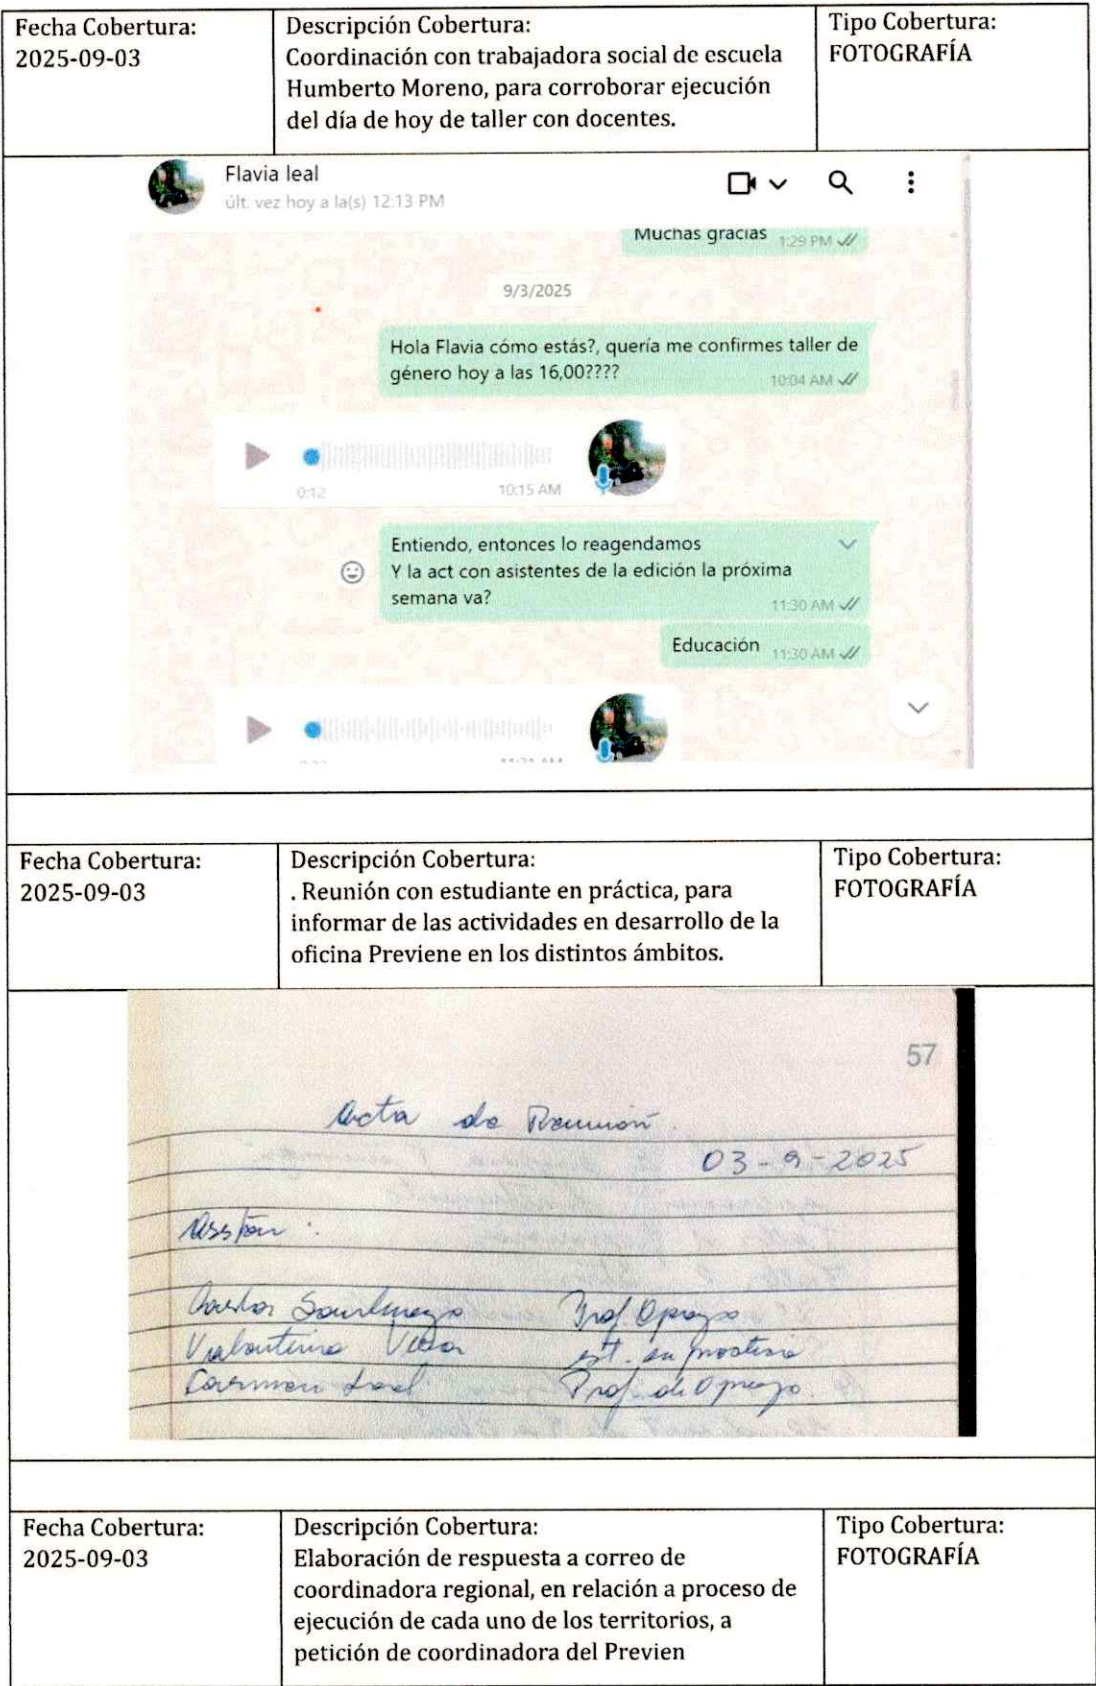 Fecha Cobertura:
2025-09-03
Descripción Cobertura:
Coordinación con trabajadora social de escuela
Humberto Moreno, para corroborar ejecución
del día de hoy de taller con docentes.
Tipo Cobertura:
FOTOGRAFÍA
Flavia leal
últ. vez hoy a la(s) 12:13 PM
Muchas gracias 1:29 PM
9/3/2025
Hola Flavia cómo estás?, quería me confirmes taller de
género hoy a las 16,00????
10:04 AM
0:12 10:15 AM
Entiendo, entonces lo reagendamos
Y la act con asistentes de la edición la próxima
semana va?
11:30 AM
Educación 11:30 AM
Fecha Cobertura:
2025-09-03
Descripción Cobertura:
. Reunión con estudiante en práctica, para
informar de las actividades en desarrollo de la
oficina Previene en los distintos ámbitos.
Tipo Cobertura:
FOTOGRAFÍA
57
Acta de Reunión.
03-9-2025
Carmen Leal Prof. de Apoyo.
Fecha Cobertura:
2025-09-03
Descripción Cobertura:
Elaboración de respuesta a correo de
coordinadora regional, en relación a proceso de
ejecución de cada uno de los territorios, a
petición de coordinadora del Previen
Tipo Cobertura:
FOTOGRAFÍA